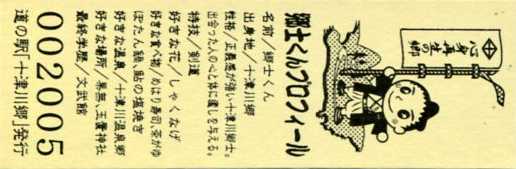 心身再生の郷
郷士くんプロフィール
名前/郷士くん
出身地/十津川郷
性格/正義感が強い十津川郷士。
出合った人の心と体に癒しを与える。
特技/剣道
好きな花/しゃくなげ
好きな食べ物/めはり寿司、茶がゆ
ぼたん鍋、鮎の塩焼き
好きな温泉/十津川温泉郷
好きな場所/果無、玉置神社
最終学歴/文武館
道の駅「十津川郷」発行
002005